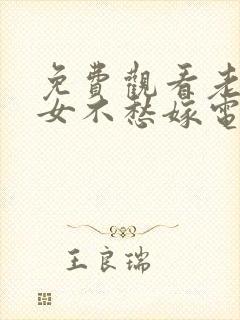 免費觀看老
女不愁嫁電
王良瑞